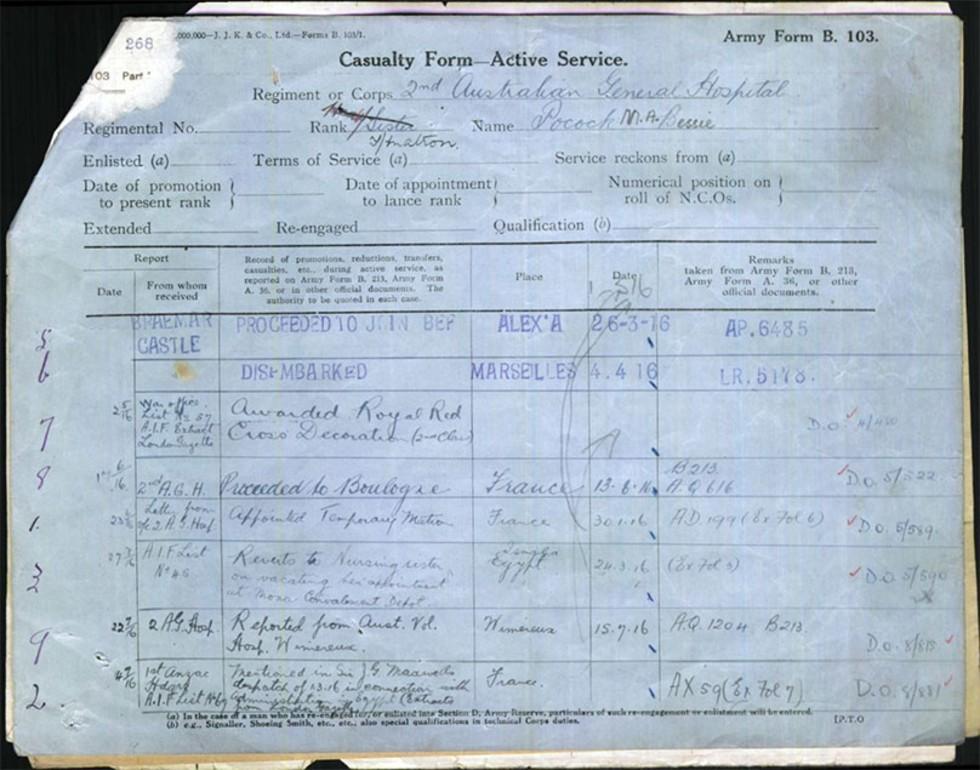 268
,000,000—J. J. K. & Co., Ltd.—Forms B. 103/1.
Army Form B. 103.
03 Part
Casualty Form—Active Service.
Regiment or Corps 2nd Australian General Hospital
Regimental No. Rank Sister Name Pocock M.A. Bessie
T/Matron.
Enlisted (a) Terms of Service (a) Service reckons from (a)
Date of promotion to present rank Date of appointment to lance rank Numerical position on roll of N.C.Os.
Extended Re-engaged Qualification (b)
Report
Date
From whom received
Record of promotions, reductions, transfers, casualties, etc., during active service, as reported on Army Form B. 213, Army Form A. 36, or in other official documents. The authority to be quoted in each case.
Place
Date
Remarks taken from Army Form B. 213, Army Form A. 36, or other official documents.
5 BRAEMAR CASTLE PROCEEDED TO JOIN BEF ALEX'A 26-3-16 AP.6485
6 DISEMBARKED MARSEILLES 4.4 16 LR.5178.
7 War Office List No 57 A.I.F. Extract London Gazette Awarded Royal Red Cross Decoration (2nd Class) D.O.
8 2nd A.G.H. Proceeded to Boulogne France 13.6.16 B213 A.Q 616 D.O. 5/522
1. Letter from 2 A.G. Hosp Appointed Temporary Matron France 30.1.16 A.D. 199 (Ex Fol 6) D.O. 5/589.
3 A.I.F List No 46 Reverts to Nursing sister on vacating her appointment at Mona Convalescent Depot. Egypt 24.3.16 (Ex Fol 3) D.O. 5/590
9 2 A.G. Hosp. Reported from Aust. Vol. Hosp. Wimereux. Wimereux 15.7.16 A.Q. 1204 B213. D.O. 8/815
2 1st Anzac Hdqrs A.I.F List No 69 Mentioned in Sir J.G. Maxwells despatch of in connection with Administration Egypt (Extracts from London Gazette France. AX 59 (Ex Fol 7) D.O. 8/881
(a) In the case of a man who has re-engaged for, or enlisted into Section D, Army Reserve, particulars of such re-engagement or enlistment will be entered.
(b) e.g., Signaller, Shoeing Smith, etc., etc., also special qualifications in technical Corps duties. [P.T.O